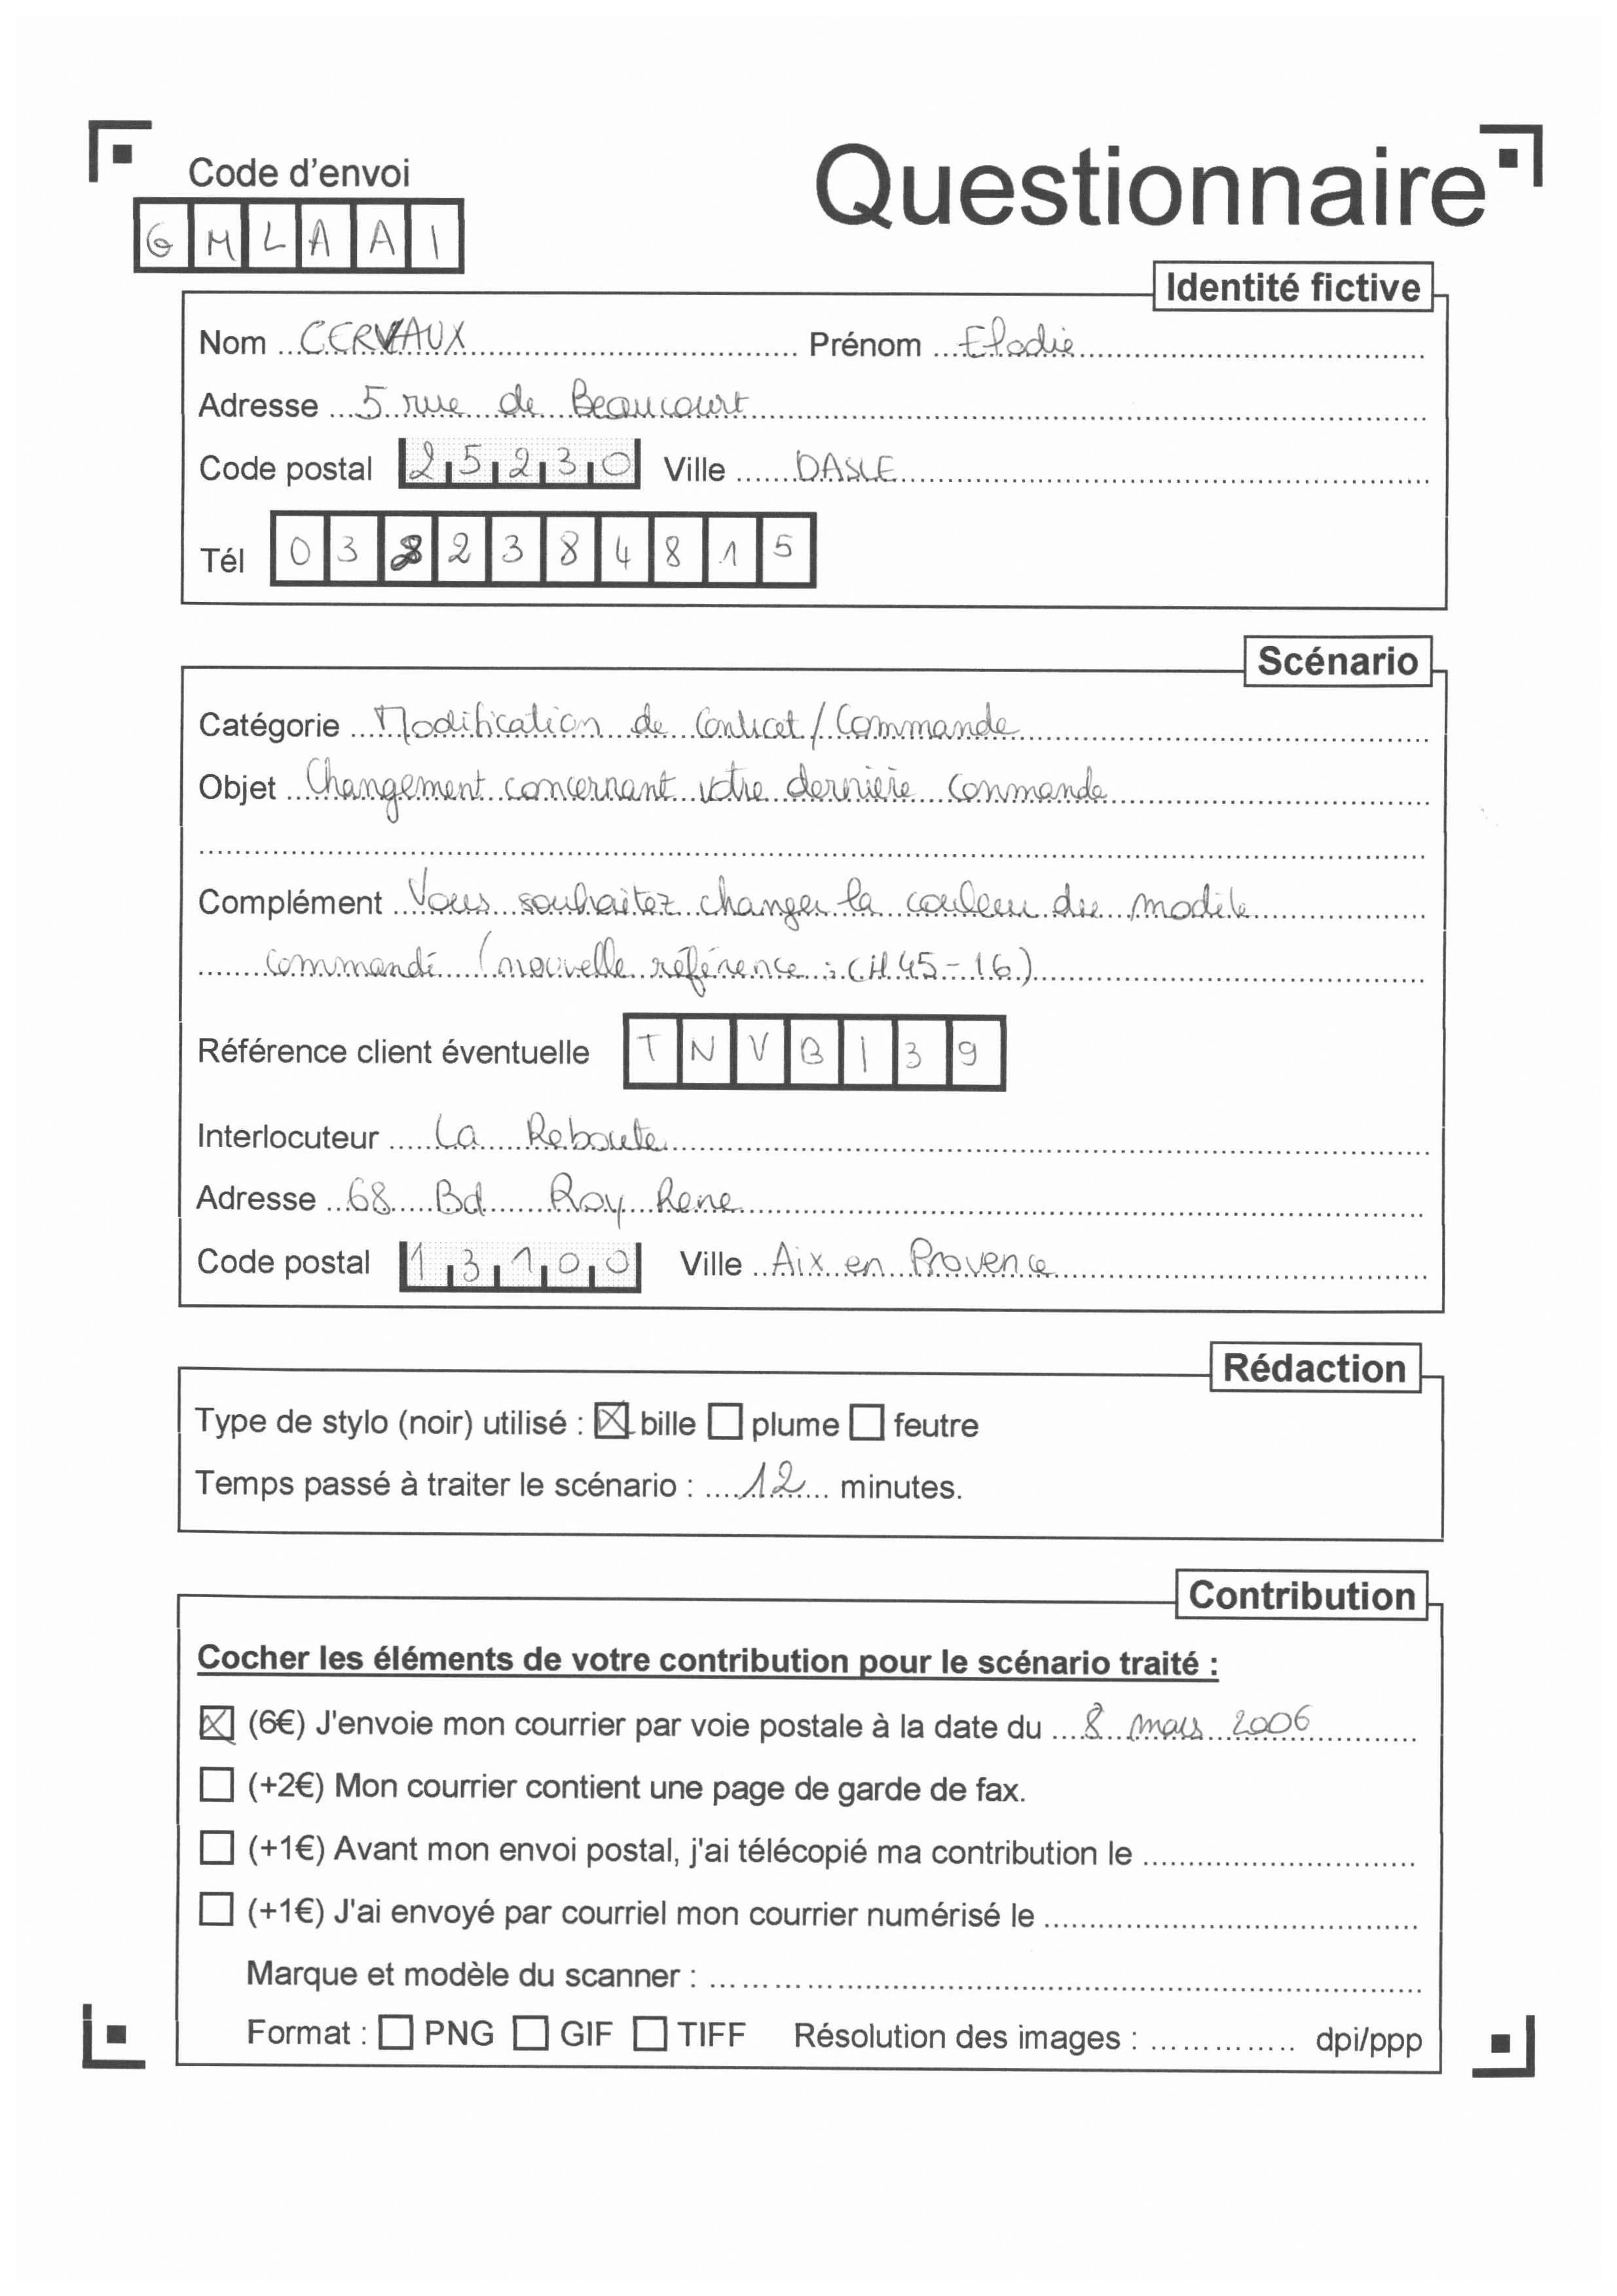 Code d'envoi
Questionnaire
G M L A A I
Identité fictive
Nom CERVAUX Prénom Elodie
Adresse 5 rue de Beaucourt
Code postal 25230 Ville DASLE
Tél 03 23 84 8 1 5
Scénario
Catégorie Modification de Contrat / Commande
Objet Changement concernant votre dernière commande
Complément Vous souhaitez changer la couleur du modèle
commandé (nouvelle référence : CH45-16)
Référence client éventuelle T N V B I 3 9
Interlocuteur La Reboute
Adresse 68 Bd Roy Rene
Code postal 13100 Ville Aix en Provence
Rédaction
Type de stylo (noir) utilisé : bille plume feutre
Temps passé à traiter le scénario : 12 minutes.
Contribution
Cocher les éléments de votre contribution pour le scénario traité :
(6€) J'envoie mon courrier par voie postale à la date du 8 mars 2006
(+2€) Mon courrier contient une page de garde de fax.
(+1€) Avant mon envoi postal, j'ai télécopié ma contribution le
(+1€) J'ai envoyé par courriel mon courrier numérisé le
Marque et modèle du scanner :
Format : PNG GIF TIFF Résolution des images : dpi/ppp